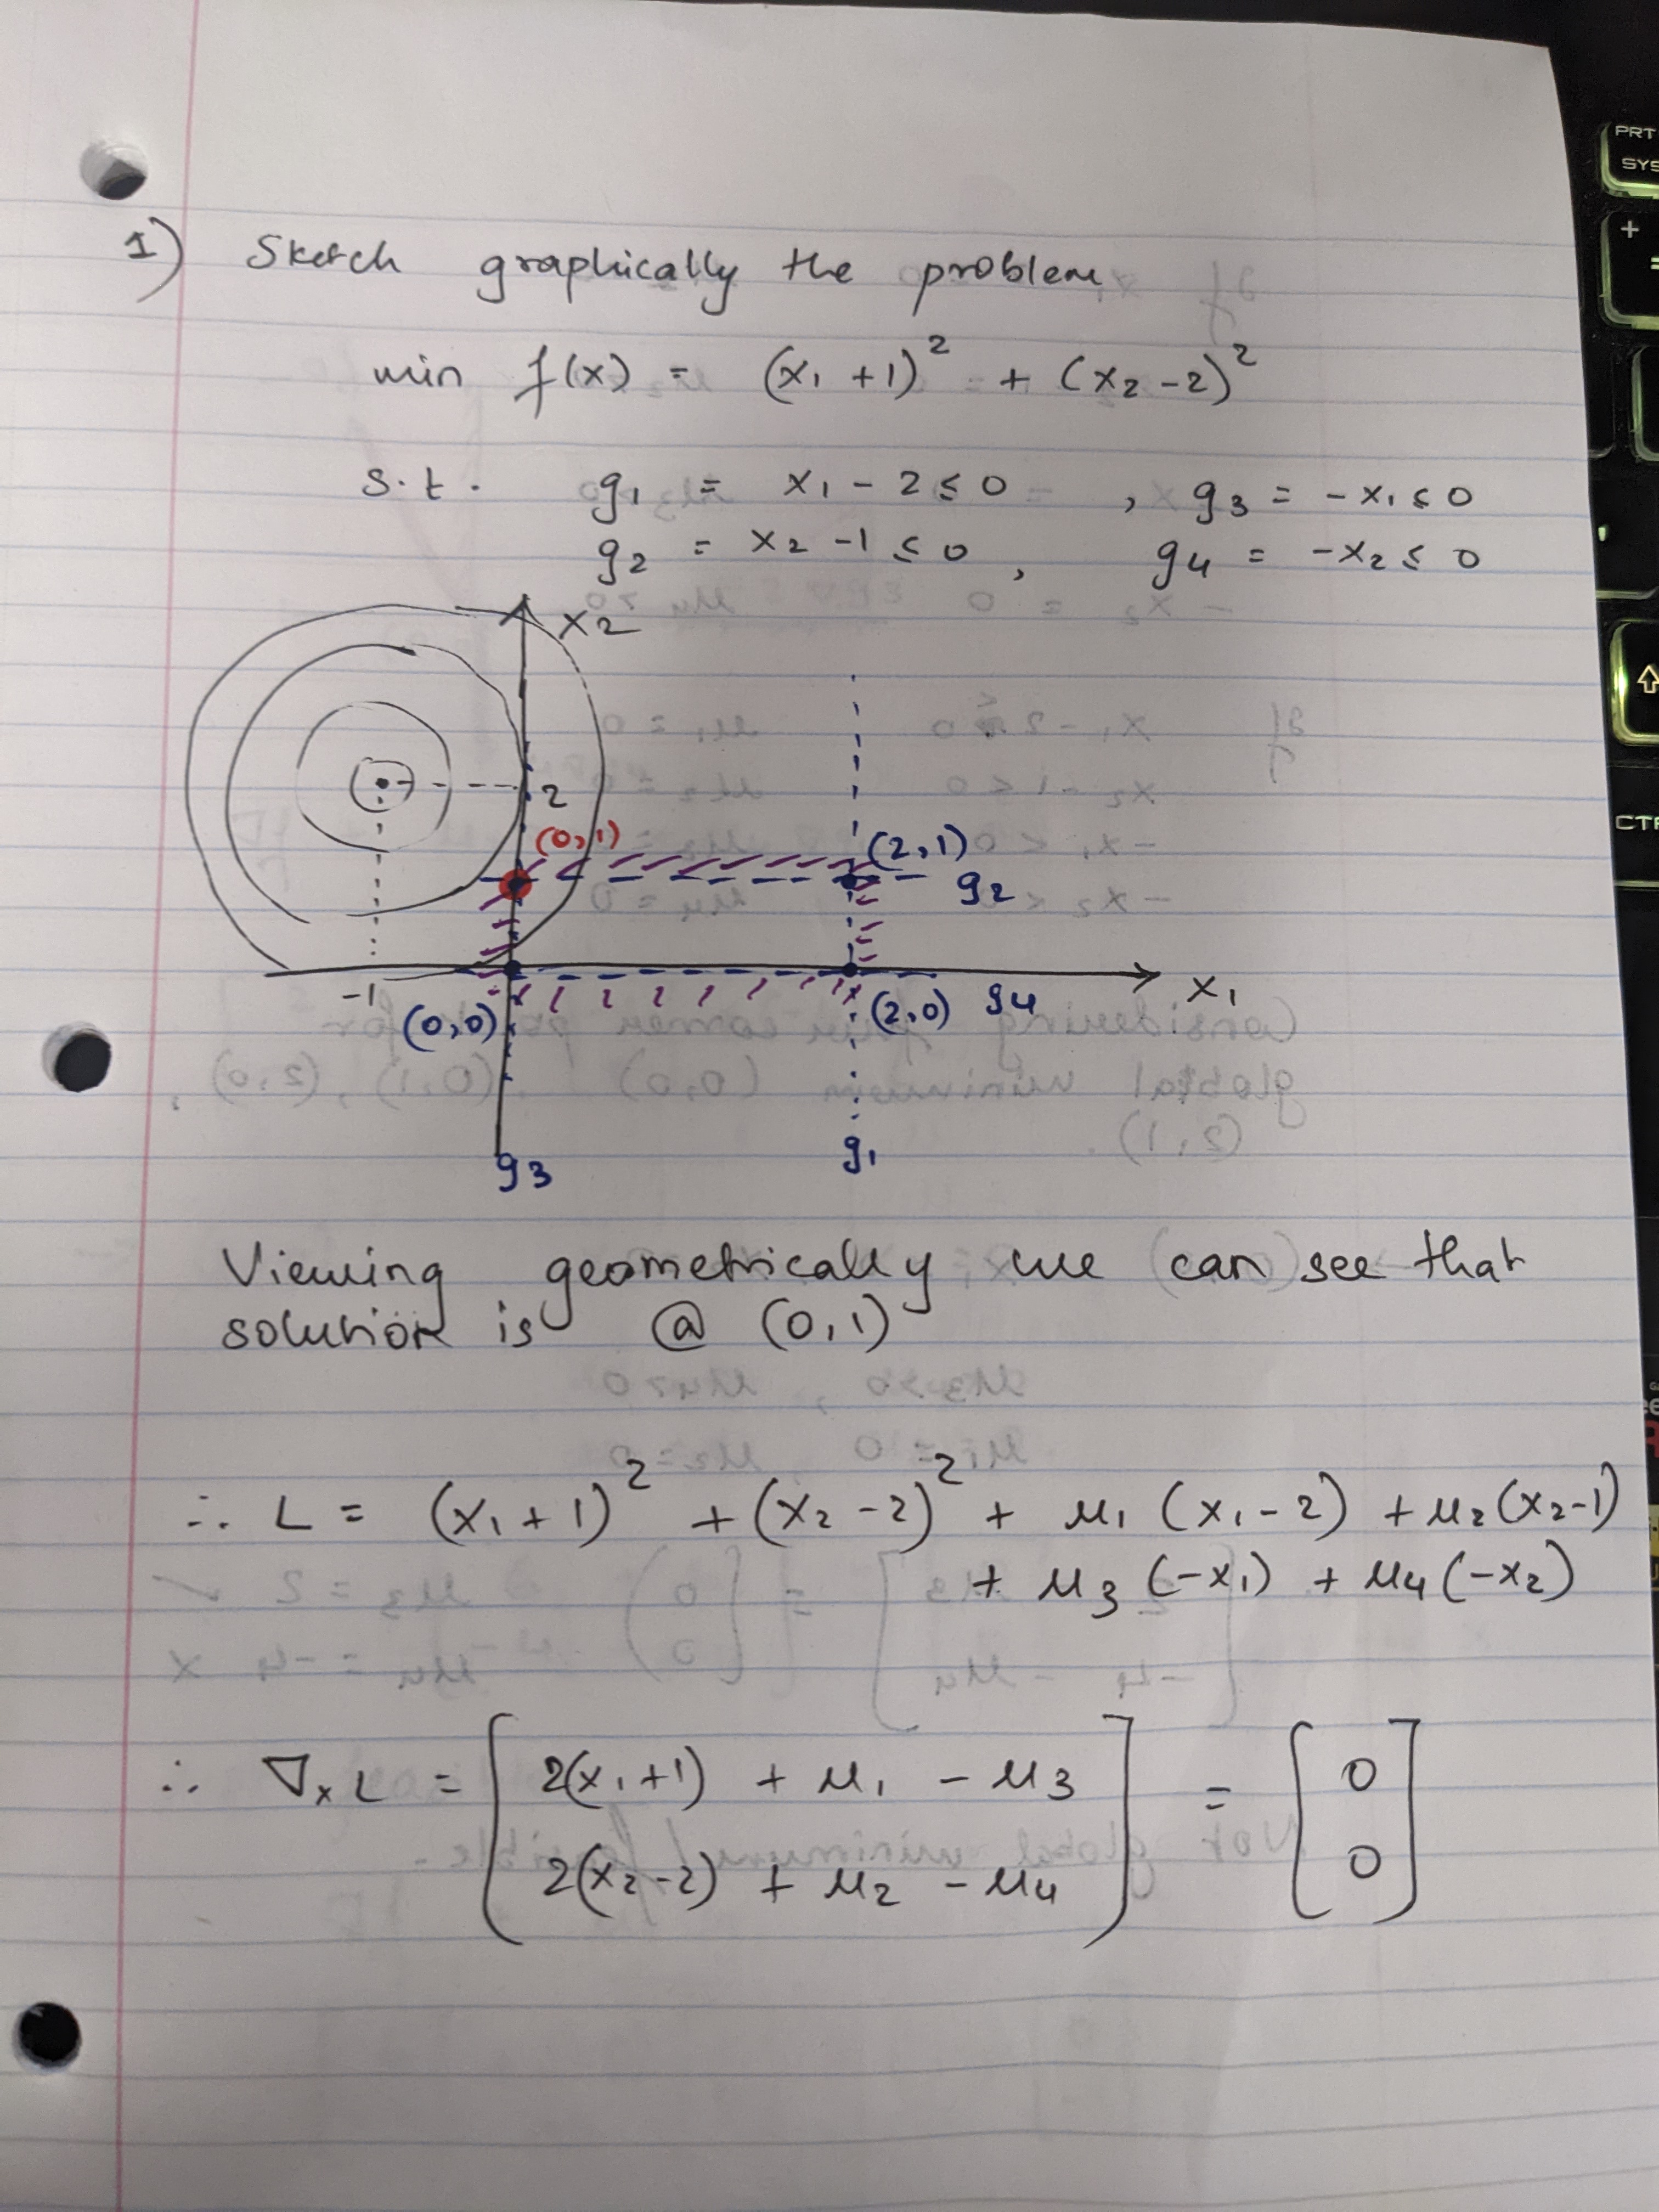 1) Sketch graphically the problem
min f(x) = (x₁ + 1)² + (x₂ - 2)²
s.t. g₁ = x₁ - 2 ≤ 0 , g₃ = -x₁ ≤ 0
g₂ = x₂ - 1 ≤ 0 , g₄ = -x₂ ≤ 0
x₂
2
(0,1)
(2,1)
g₂
-1
x₁
(0,0)
(2,0)
g₄
g₃
g₁
Viewing geometrically we can see that
solution is @ (0,1)
∴ L = (x₁ + 1)² + (x₂ - 2)² + μ₁ (x₁ - 2) + μ₂(x₂-1)
+ μ₃ (-x₁) + μ₄ (-x₂)
∴ ∇ₓL = [ 2(x₁+1) + μ₁ - μ₃ ] = [ 0 ]
[ 2(x₂-2) + μ₂ - μ₄ ] [ 0 ]
PRT
SYS
+
=
CTR